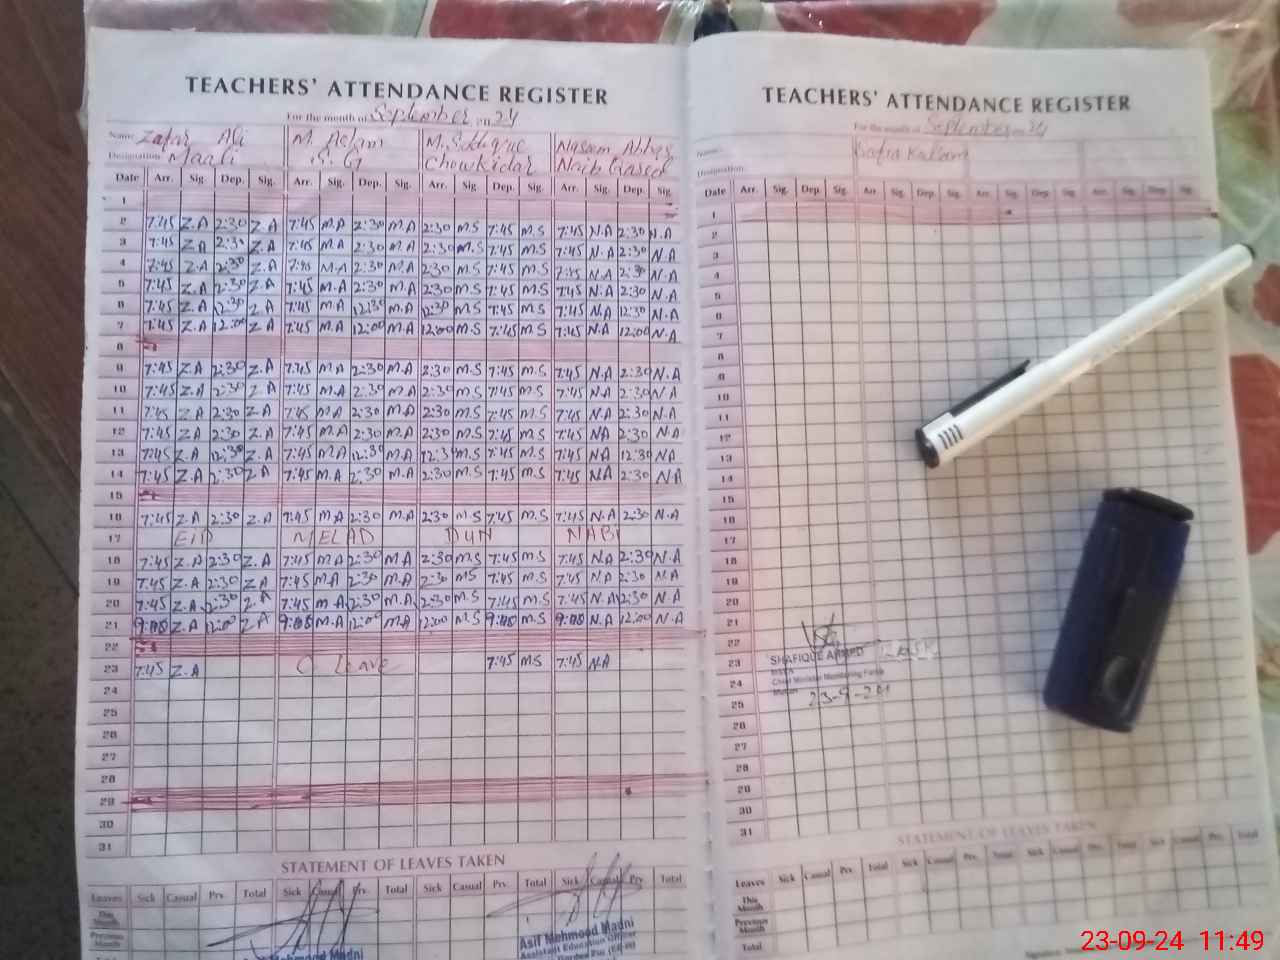 TEACHERS' ATTENDANCE REGISTER
For the month of September 2024
Name: Zafar Ali M. Aslam M. Siddique Naseem Abbas
Designation: Maali S. G Chowkidar Naib Qasid
Date Arr. Sig. Dep. Sig. Arr. Sig. Dep. Sig. Arr. Sig. Dep. Sig. Arr. Sig. Dep. Sig.
1
2 7:45 Z.A 2:30 Z.A 7:45 M.A 2:30 M.A 2:30 M.S 7:45 M.S 7:45 N.A 2:30 N.A
3 7:45 Z.A 2:30 Z.A 7:45 M.A 2:30 M.A 2:30 M.S 7:45 M.S 7:45 N.A 2:30 N.A
4 7:45 Z.A 2:30 Z.A 7:45 M.A 2:30 M.A 2:30 M.S 7:45 M.S 7:45 N.A 2:30 N.A
5 7:45 Z.A 2:30 Z.A 7:45 M.A 2:30 M.A 2:30 M.S 7:45 M.S 7:45 N.A 2:30 N.A
6 7:45 Z.A 12:30 Z.A 7:45 M.A 12:30 M.A 12:30 M.S 7:45 M.S 7:45 N.A 12:30 N.A
7 7:45 Z.A 12:00 Z.A 7:45 M.A 12:00 M.A 12:00 M.S 7:45 M.S 7:45 N.A 12:00 N.A
8
9 7:45 Z.A 2:30 Z.A 7:45 M.A 2:30 M.A 2:30 M.S 7:45 M.S 7:45 N.A 2:30 N.A
10 7:45 Z.A 2:30 Z.A 7:45 M.A 2:30 M.A 2:30 M.S 7:45 M.S 7:45 N.A 2:30 N.A
11 7:45 Z.A 2:30 Z.A 7:45 M.A 2:30 M.A 2:30 M.S 7:45 M.S 7:45 N.A 2:30 N.A
12 7:45 Z.A 2:30 Z.A 7:45 M.A 2:30 M.A 2:30 M.S 7:45 M.S 7:45 N.A 2:30 N.A
13 7:45 Z.A 12:30 Z.A 7:45 M.A 12:30 M.A 12:30 M.S 7:45 M.S 7:45 N.A 12:30 N.A
14 7:45 Z.A 2:30 Z.A 7:45 M.A 2:30 M.A 2:30 M.S 7:45 M.S 7:45 N.A 2:30 N.A
15
16 7:45 Z.A 2:30 Z.A 7:45 M.A 2:30 M.A 2:30 M.S 7:45 M.S 7:45 N.A 2:30 N.A
17 EID MELAD DUN NABI
18 7:45 Z.A 2:30 Z.A 7:45 M.A 2:30 M.A 2:30 M.S 7:45 M.S 7:45 N.A 2:30 N.A
19 7:45 Z.A 2:30 Z.A 7:45 M.A 2:30 M.A 2:30 M.S 7:45 M.S 7:45 N.A 2:30 N.A
20 7:45 Z.A 2:30 Z.A 7:45 M.A 2:30 M.A 2:30 M.S 7:45 M.S 7:45 N.A 2:30 N.A
21 Z.A 12:00 Z.A M.A 12:00 M.A 12:00 M.S M.S N.A 12:00 N.A
22
23 7:45 Z.A C. Leave 7:45 M.S 7:45 N.A
24
25
26
27
28
29
30
31
STATEMENT OF LEAVES TAKEN
Leaves Sick Casual Prv. Total Sick Casual Prv. Total Sick Casual Prv. Total Sick Casual Prv. Total
This Month
Previous Month
Total
Mehmood Madni
Asif Mehmood Madni
Assistant Education Officer
TEACHERS' ATTENDANCE REGISTER
For the month of September 2024
Name:
Designation:
Date Arr. Sig. Dep. Sig. Arr. Sig. Dep. Sig. Arr. Sig. Dep. Sig. Arr. Sig. Dep. Sig.
1
2
3
4
5
6
7
8
9
10
11
12
13
14
15
16
17
18
19
20
21
22
23 SHAFIQUE AHMED
24 Chief Minister Monitoring Force
25 23-9-24
26
27
28
29
30
31
STATEMENT OF LEAVES TAKEN
Leaves Sick Casual Prv. Total Sick Casual Prv. Total Sick Casual Prv. Total Sick Casual Prv. Total
This Month
Previous Month
Total
23-09-24 11:49